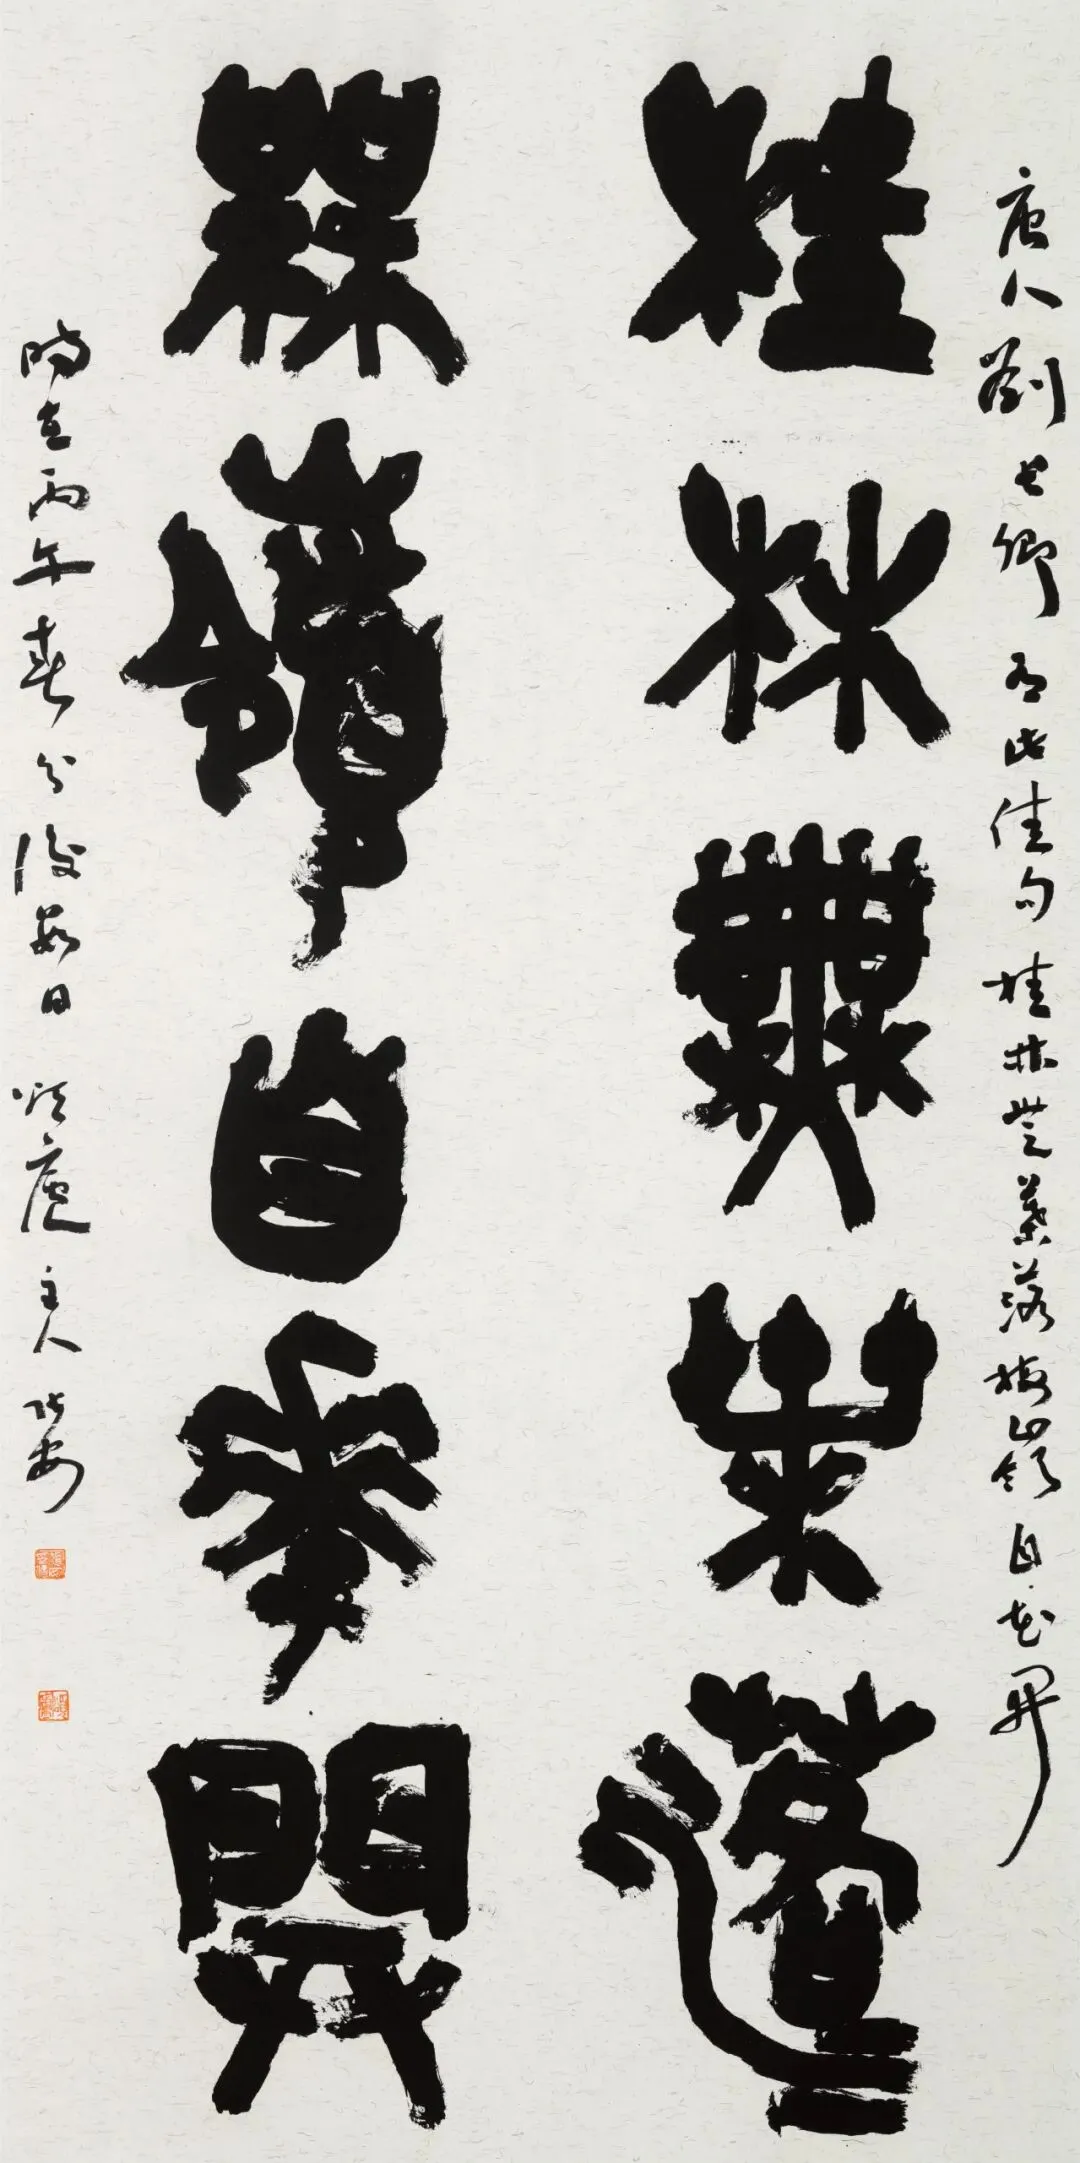 唐人劉長卿有此佳句桂林無葉落梅嶺自花開
桂林無葉落
槑嶺自華開
時在丙午春分後數日廬主人